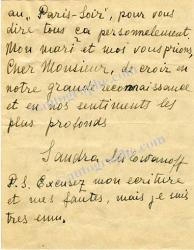 au „Paris-Soir", pour vous
dire tous ca personnelement.
Mon mari et moi vous prions,
Cher Monsieur, de croir en
notre grande reconnaissance
et en nos sentiments les
plus profonds
Sandra
P.S. Excusez mon ecriture
et mes fautes, mais je suis
tres emu.